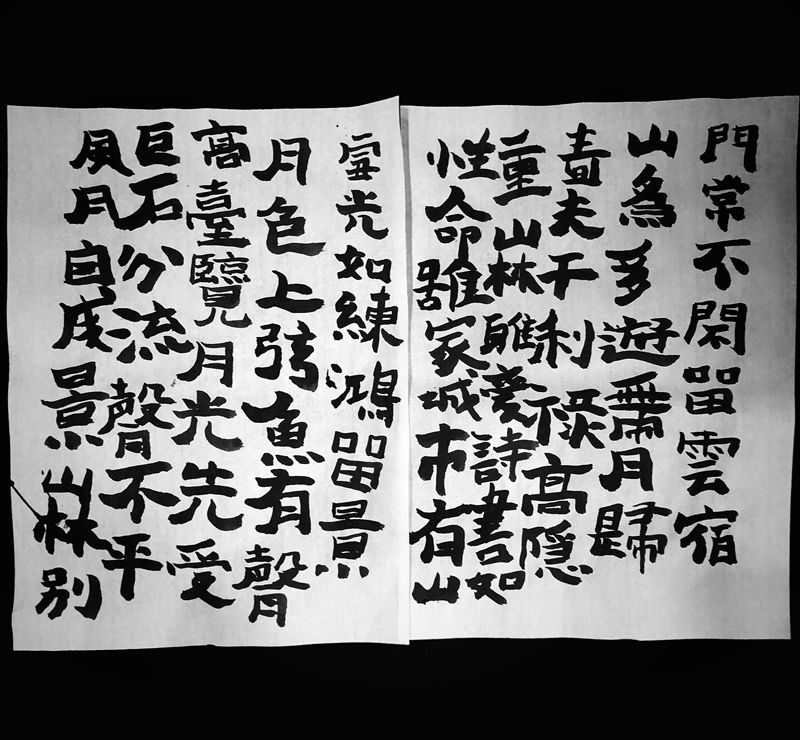 門常不閑留雲宿
山為多遊無月歸
夫干利祿高隱
重山林雖愛詩書如
性命離家城市有山
光如練鴻留景
月色上弦魚有聲
高臺覽月光先受
巨石分流聲不平
風月自成景山林別